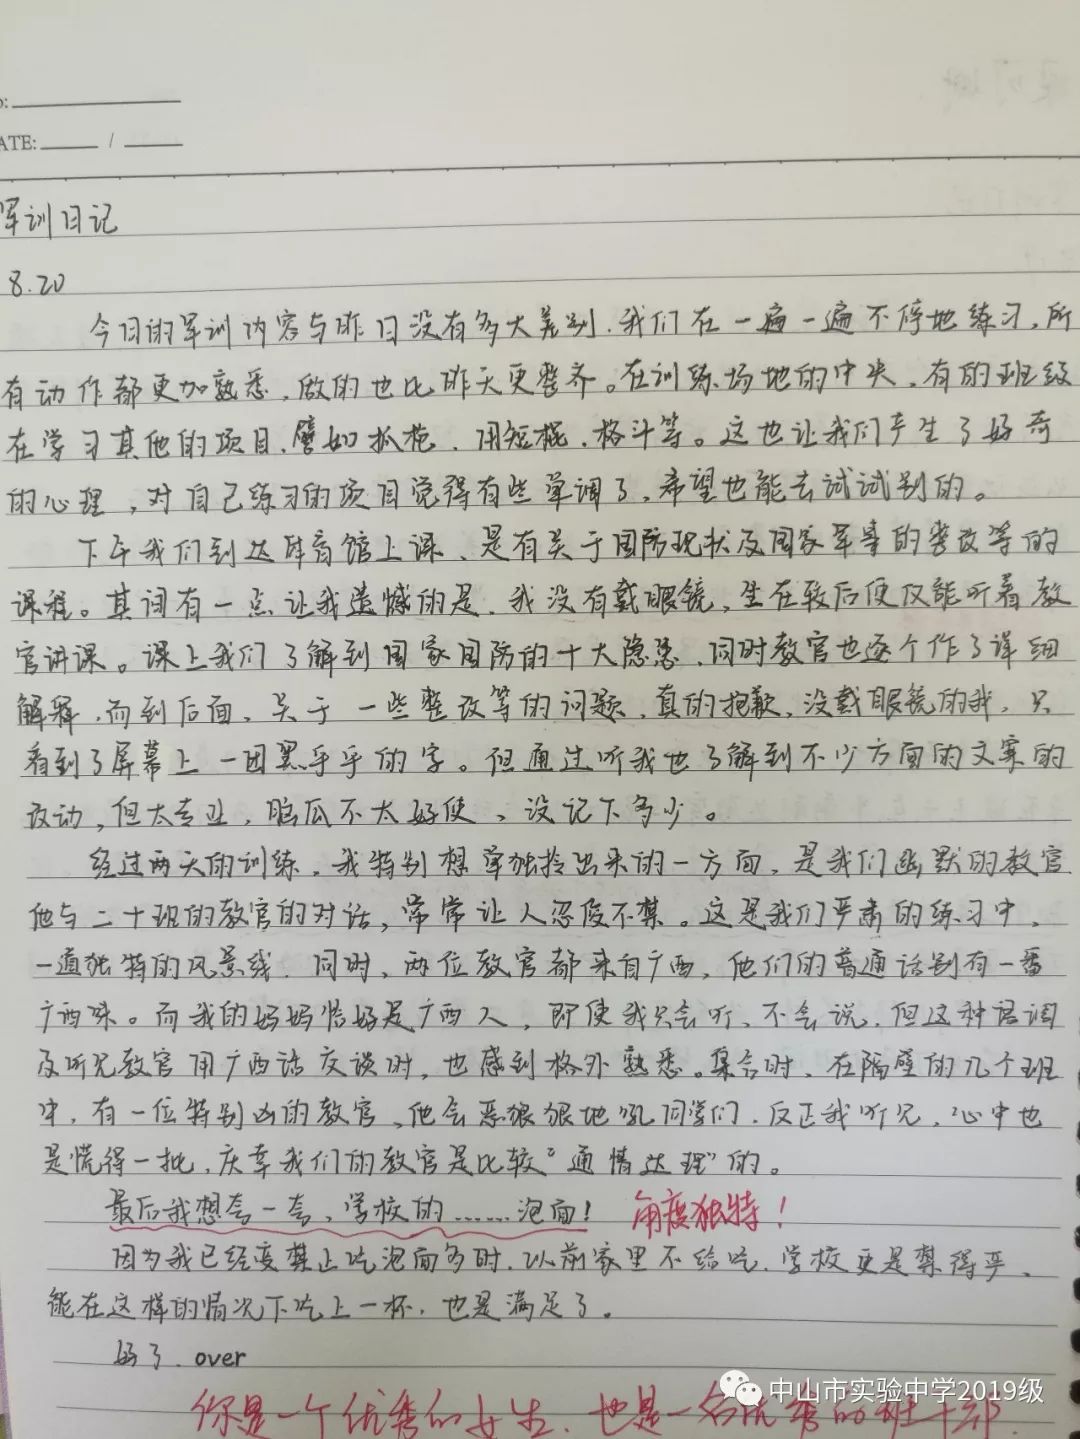 DATE: /
军训日记
8.20
今日的军训内容与昨日没有多大差别,我们在一遍一遍不停地练习,所
有动作都更加熟悉,做的也比昨天更整齐。在训练场地的中央,有的班级
在学习其他的项目,譬如抓枪、用短棍、格斗等。这也让我们产生了好奇
的心理,对自己练习的项目觉得有些单调了,希望也能去试试别的。
下午我们到达体育馆上课、是有关于国防现状及国家军事的整改等的
课程。其间有一点让我遗憾的是,我没有戴眼镜,坐在较后便仅能听着教
官讲课。课上我们了解到国家国防的十大隐患,同时教官也逐个作了详细
解释,而到后面,关于一些整改等的问题,真的抱歉,没戴眼镜的我,只
看到了屏幕上一团黑乎乎的字。但通过听我也了解到不少方面的文案的
改动,但太专业,脑瓜不太好使、没记下多少。
经过两天的训练,我特别想单独拎出来的一方面,是我们幽默的教官
他与二十班的教官的对话,常常让人忍俊不禁。这是我们严肃的练习中,
一道独特的风景线.同时,两位教官都来自广西,他们的普通话别有一番
广西味。而我的妈妈恰好是广西人,即使我只会听、不会说,但这种语调
及听见教官用广西话交谈时,也感到格外熟悉。集合时,在隔壁的几个班
中,有一位特别凶的教官、他会恶狠狠地吼同学们,反正我听见,心中也
是慌得一批,庆幸我们的教官是比较“通情达理”的。
最后我想夸一夸、学校的……泡面! 角度独特!
因为我已经受禁止吃泡面多时,以前家里不给吃,学校更是禁得严、
能在这样的情况下吃上一杯,也是满足了。
好了.over
中山市实验中学2019级
你是一个优秀的女生,也是一名优秀的班干部.